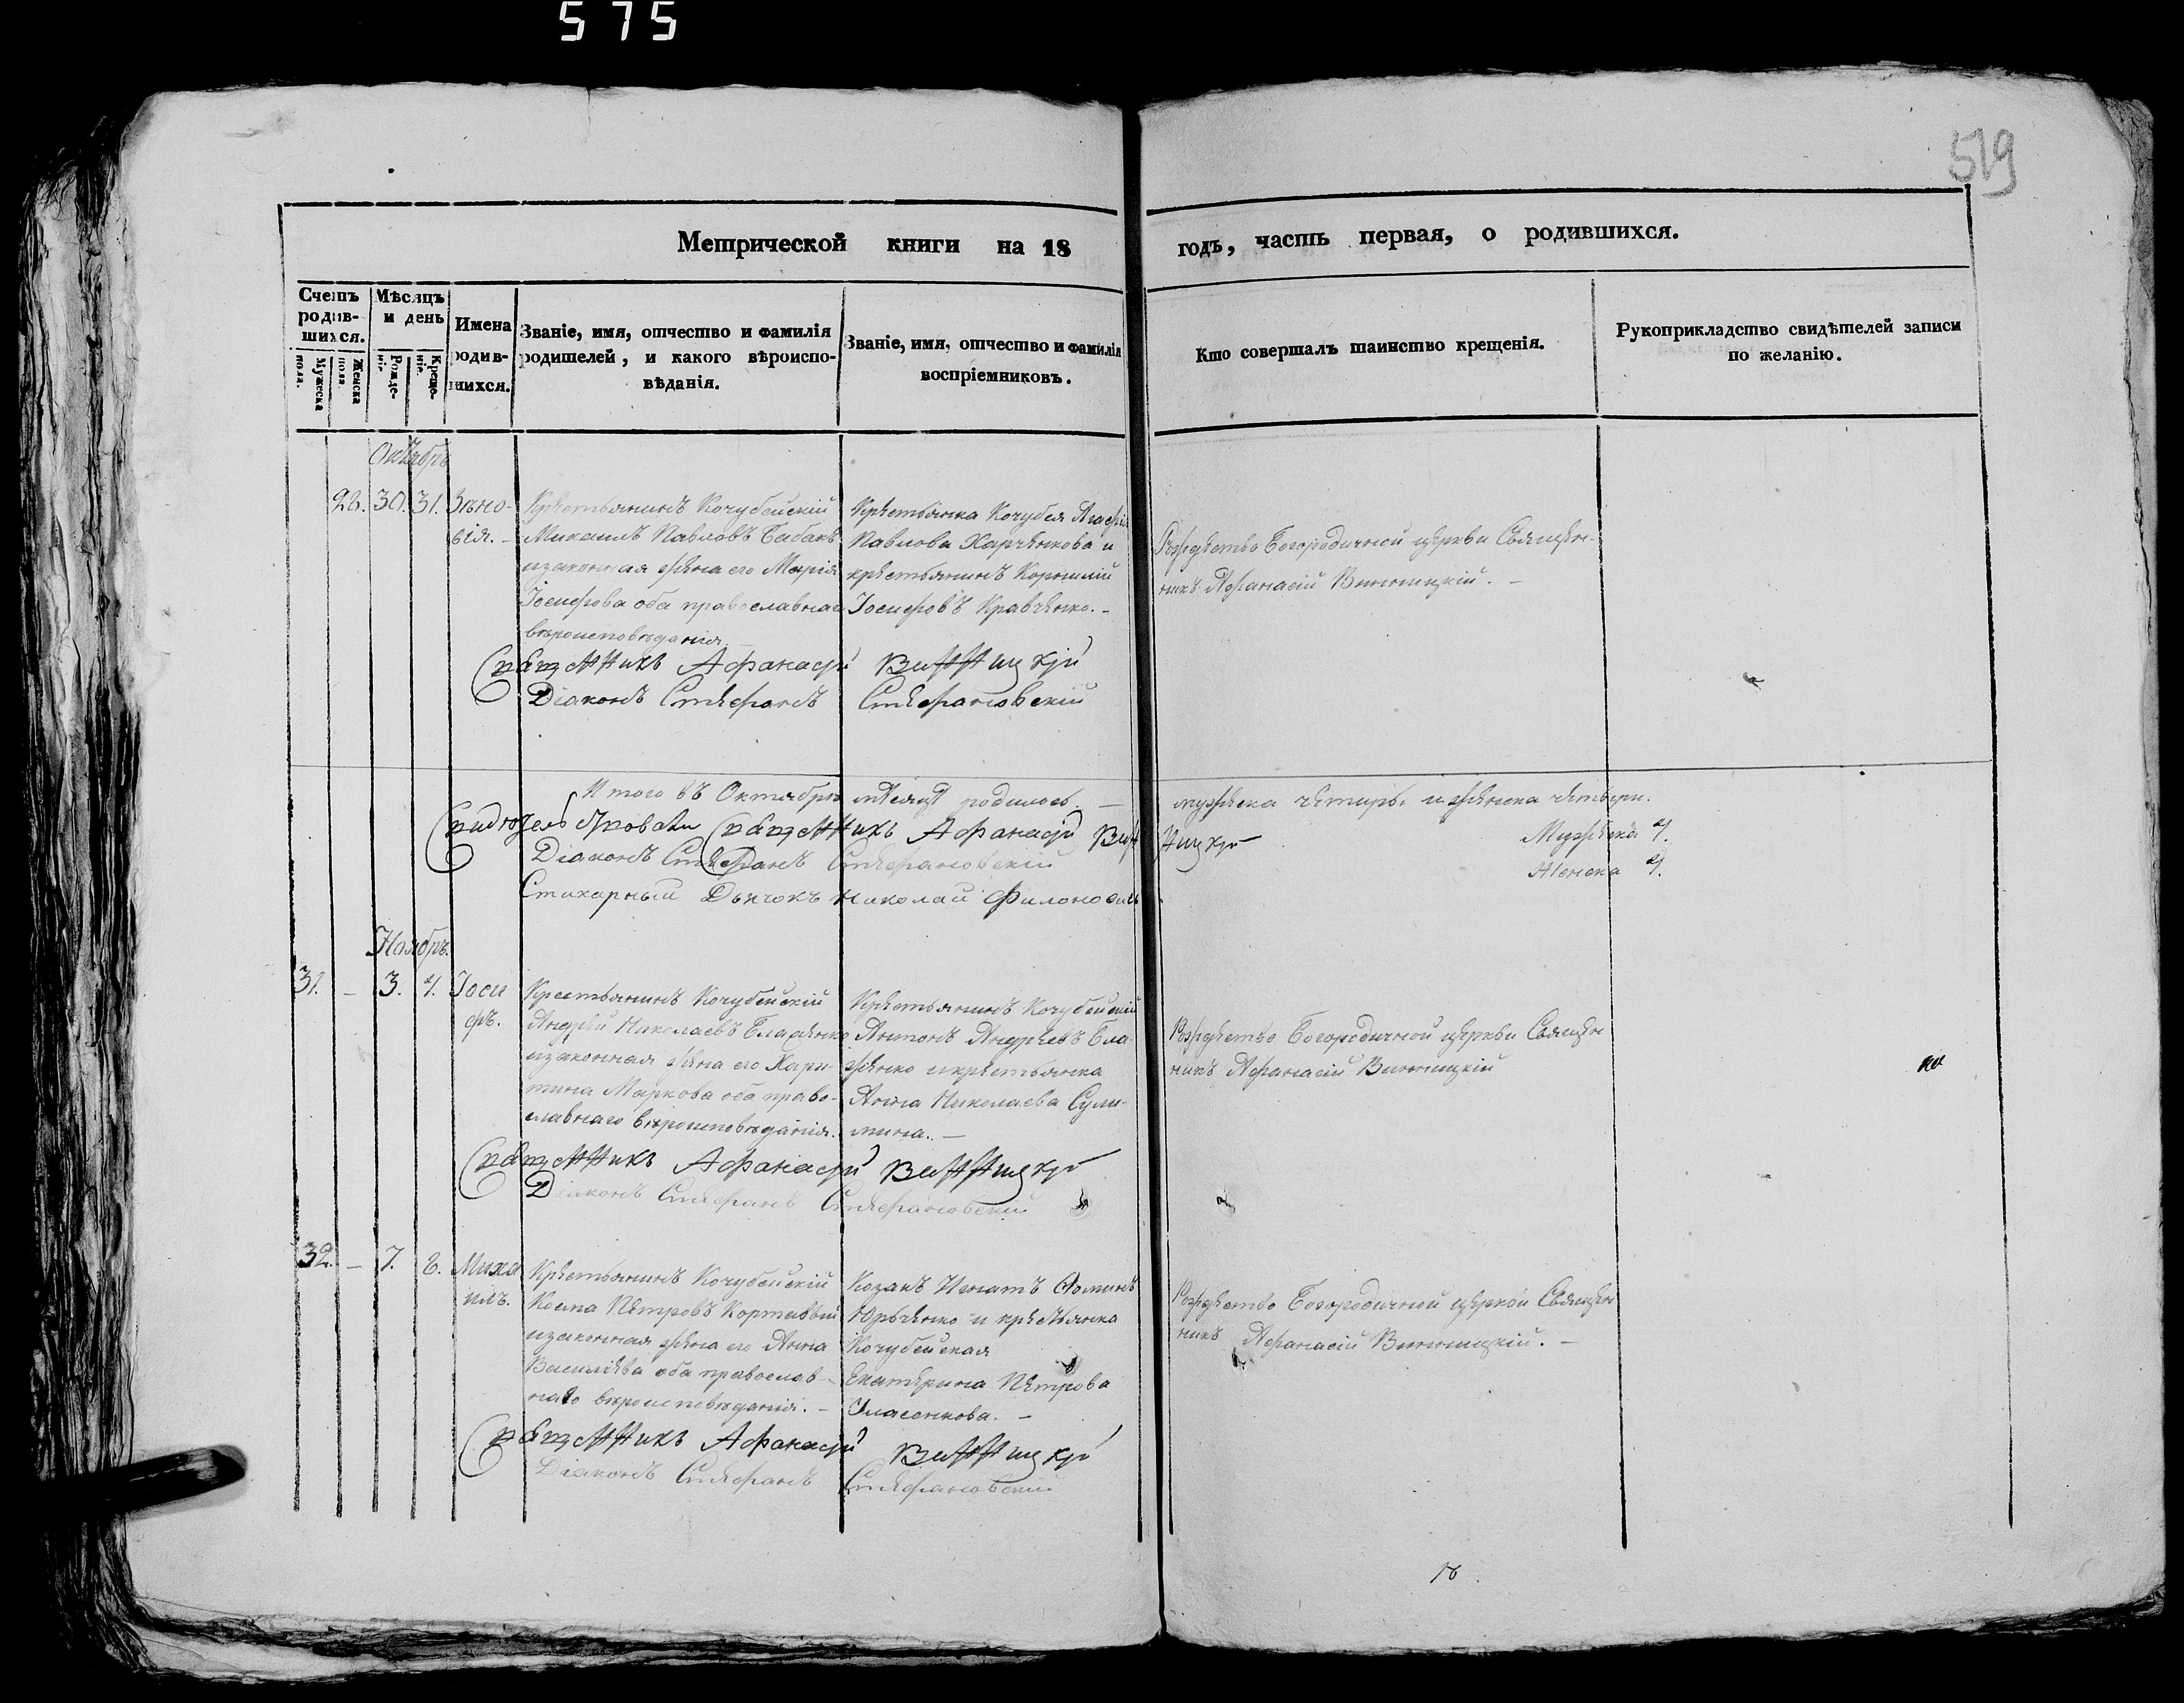 575
519
Метрической книги на 18 годъ, часть первая, о родившихся.
Счетъ родив-шихся.
Мужеска пола.
Женска пола.
Мѣсяцъ и день
Рожде-нія.
Креще-нія.
Имена родив-шихся.
Званіе, имя, отчество и фамилія родителей, и какого вѣроиспо-вѣданія.
Званіе, имя, отчество и фамилія воспріемниковъ.
Кто совершалъ таинство крещенія.
Рукоприкладство свидѣтелей записи по желанію.
Октябрь
28. 30. 31. Зино-
вія. -
Крестьянинъ Кочубейскій
Михаилъ Павловъ Бабакъ
и законная жена его Марія
Іосифова оба православнаго
вѣроисповѣданія. -
Крестьянка Кочубея Агафія
Павлова Харченкова и
крестьянинъ Корнилій
Іосифовъ Кравченко. -
Рождество Богородичной церкви Священ-
никъ Афанасій Винницкій. -
Священникъ Афанасій Винницкій
Діаконъ Стефанъ Стефановскій
Итого въ Октябрѣ мѣсяцѣ родилось - мужеска четыре и женска четыри.
Мужеска 4.
Женска 4.
Свидѣтельствовали Священникъ Афанасій Винницкій
Діаконъ Стефанъ Стефановскій
Стихарный Дьячокъ Николай
Ноябрь.
31. - 3. 4. Іоси
фъ.
Крестьянинъ Кочубейскій
Андрей Николаевъ Блаженко
и законная жена его Хари-
тина Маркова оба право-
славнаго вѣроисповѣданія.
Крестьянинъ Кочубейскій
Антонъ Андреевъ Бла-
женко и крестьянка
Анна Николаева Сули-
мина. -
Рождество Богородичной церкви Священ
никъ Афанасій Винницкій
Священникъ Афанасій Винницкій
Діаконъ Стефанъ Стефановскій
32. - 7. 8. Миха
илъ.
Крестьянинъ Кочубейскій
Козма Петровъ
и законная жена его Анна
Василіева оба православ-
наго вѣроисповѣданія. -
Козакъ Игнатъ Фоминъ
Юрченко и крестьянка
Кочубейская
Екатерина Петрова
Рождество Богородичной церкви Священ
никъ Афанасій Винницкій. -
Священникъ Афанасій Винницкій
Діаконъ Стефанъ Стефановскій